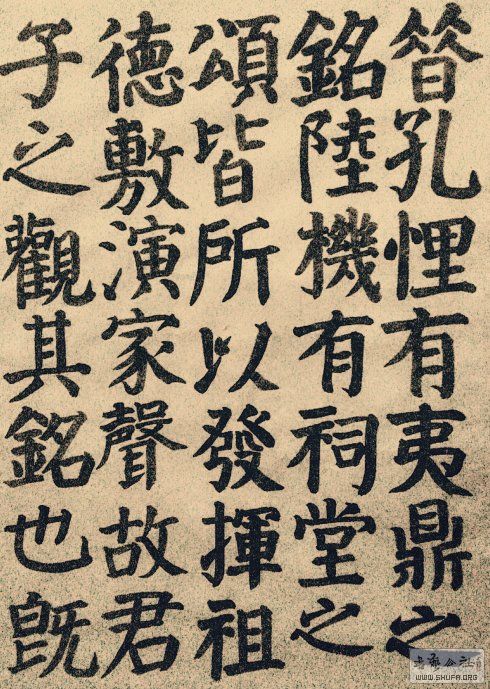 昔孔悝有夷鼎之
銘陸機有祠堂之
頌皆所以發揮祖
德敷演家聲故君
子之觀其銘也既
WWW.SHUFA.ORG